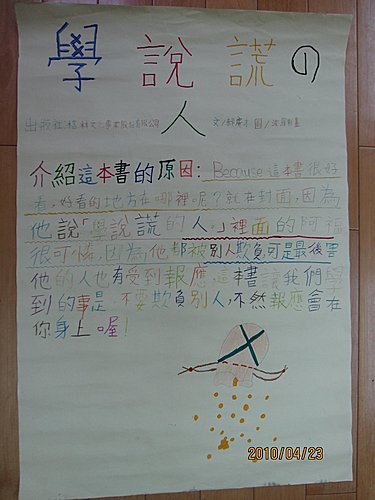 學說謊的
人
出版社:格林文化事業股份有限公司 文/郝廣才 圖/
介紹這本書的原因:Because這本書很好
看,好看的地方在哪裡呢?就在封面,因為
他說「學說謊的人。」裡面的阿福
很可憐,因為他都被別人欺負可是最後害
他的人也有受到報應,這本書讓我們學
到的事是:不要欺負別人,不然報應會在
你身上喔!
2010/04/23